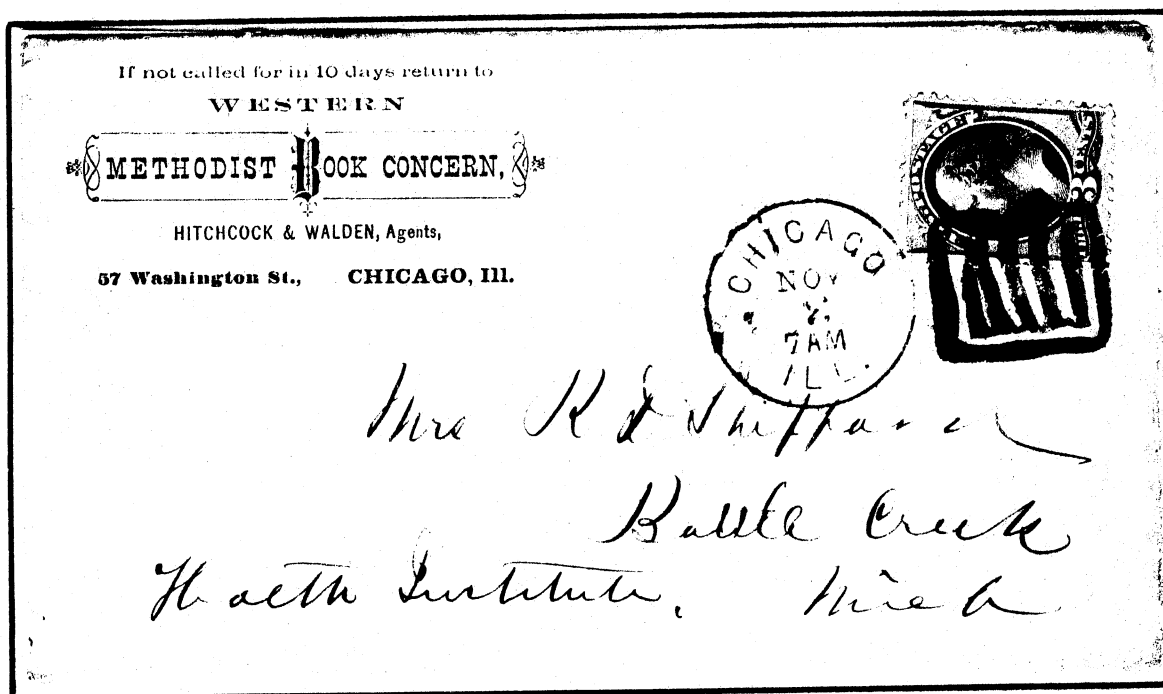 If not called for in 10 days return to
WESTERN
METHODIST BOOK CONCERN,
HITCHCOCK & WALDEN, Agents,
57 Washington St., CHICAGO, Ill.
CHICAGO
NOV
7AM
ILL.
3
Mrs R D Sheppard
Battle Creek
Health Institute, Mich